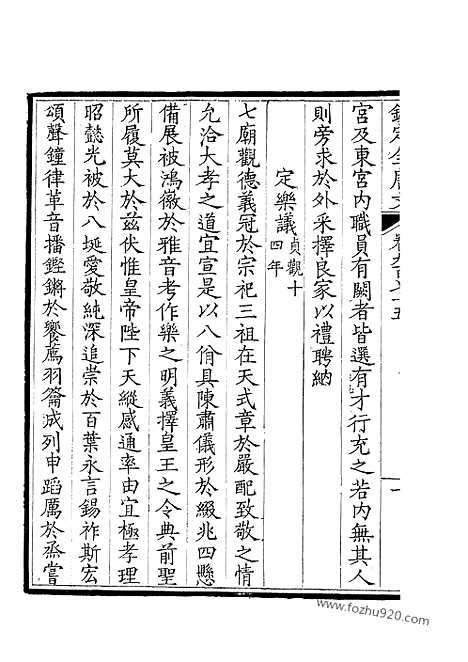 宮及東宮內職員有闕者皆選有才行充之若內無其人
則旁求於外采擇良家以禮聘納
定樂議貞觀十四年
七廟觀德義冠於宗祀三祖在天式章於嚴配致敬之情
允洽大孝之道宜宣是以八佾具陳肅儀形於綴兆四懸
備展被鴻徽於雅音考作樂之明義擇皇王之令典前聖
所履莫大於茲伏惟皇帝陛下天縱感通率由宜極孝理
昭懿光被於八埏愛敬純深追崇於百葉永言錫祚斯宏
頌聲鐘律革音播鏗鏘於饗薦羽籥成列申蹈厲於烝嘗
www.fozhu920.com